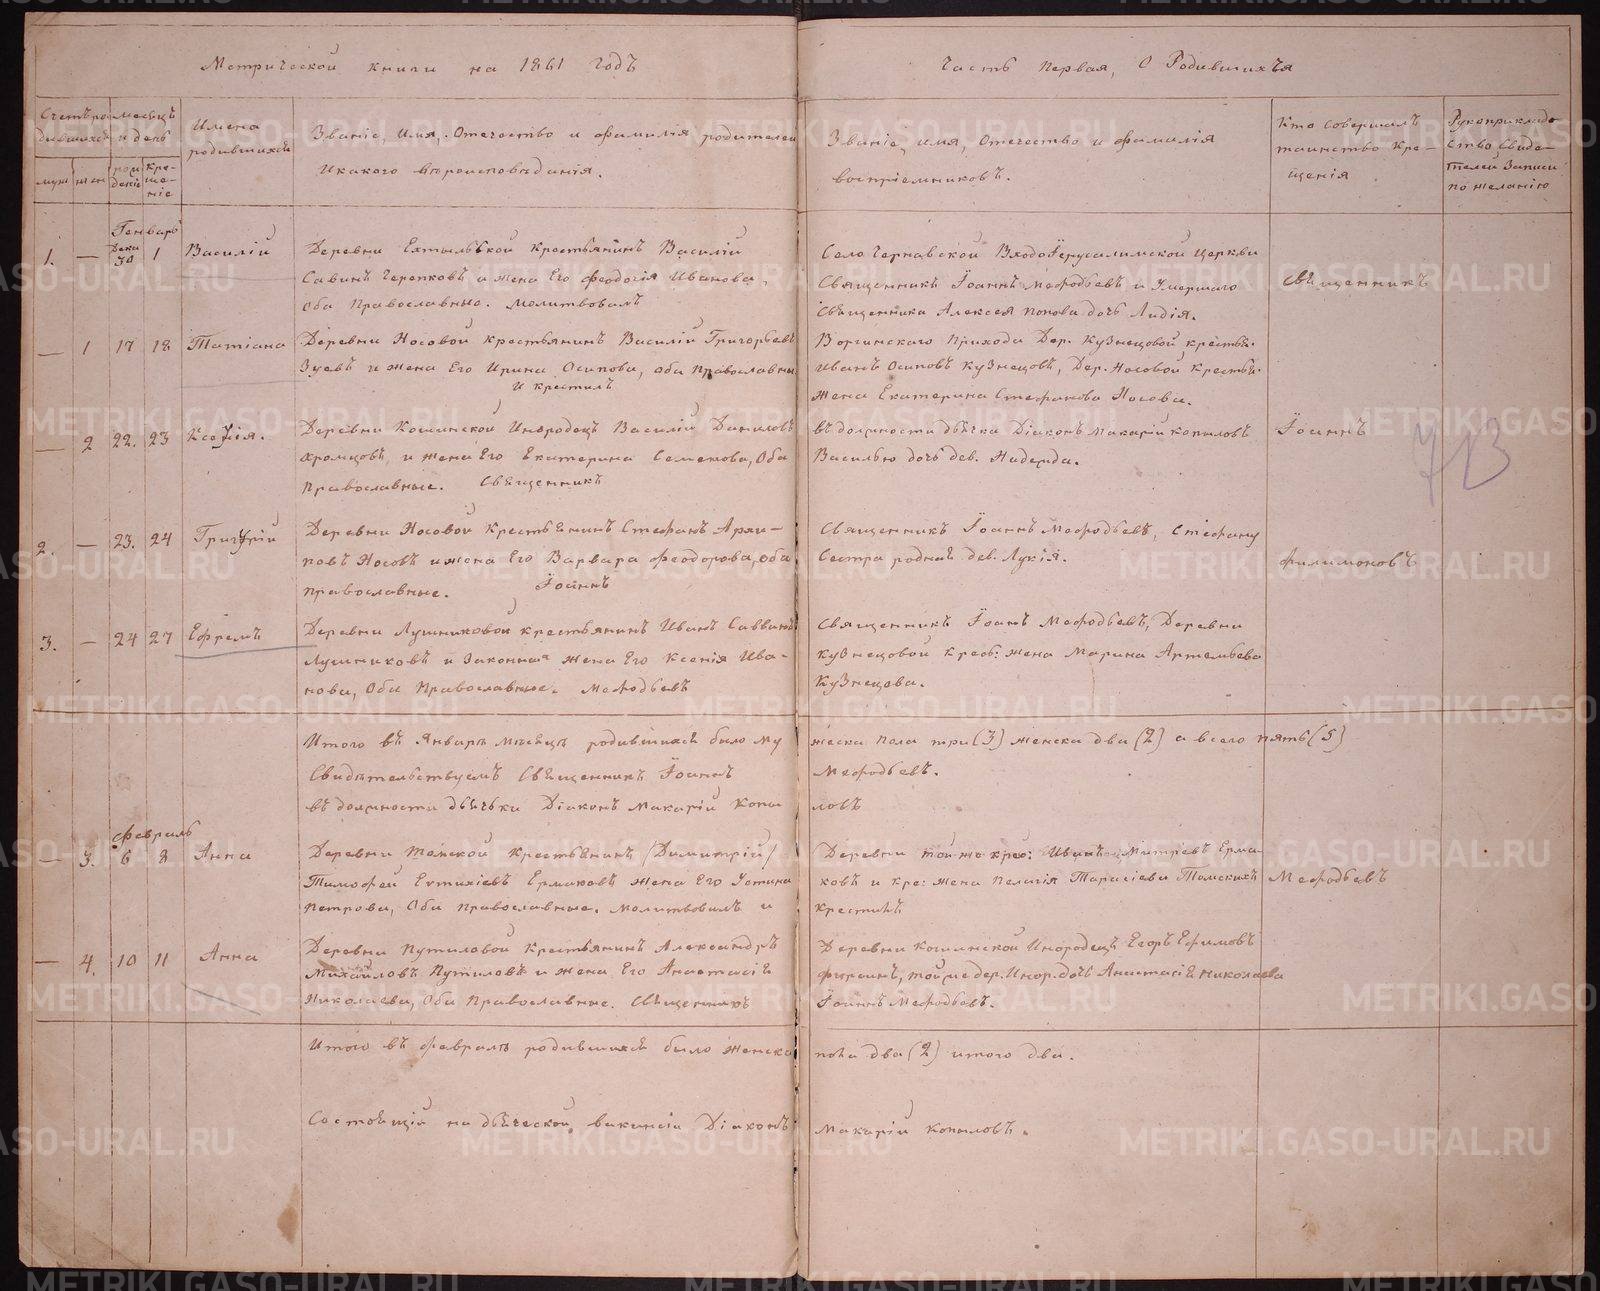 Метрической книги на 1861 годъ
Часть первая, О Родившихъя
Счетъ родившихся
месяцъ и день
Имена родившихся
Званіе, Имя, Отечество и фамилія родителей
и какого вероисповѣданія.
Званіе, имя, Отечество и фамилія
воспріемниковъ.
Кто совершалъ
таинство Кре-
щенія
Рукоприкладо
ство Свиде-
телей Записи
по желанію
муж жен рожденіе кре-
ще-
ніе
Генварь
1. — Дека 30 1 Василій
Деревни крестьянинъ Василій
Савинъ Черепковъ и жена Его Феодосія Иванова,
Оба Православные. Молитвовалъ
Село Чернавской ВходоІерусалимской Церкви
Священникъ Іоаннъ Мефодьевъ и Умершаго
Священника Алексея Попова дочь Лидія.
Священникъ
— 1 17 18 Татіана
Деревни Носовой крестьянинъ Василій Григорьевъ
Зуевъ и жена Его Ирина Осипова, оба православны
и крестилъ
Прихода Дер. Кузнецовой крестья.
Иванъ Осиповъ Кузнецовъ, Дер. Носовой Крестья.
Жена Екатерина Стефанова Носова.
— 2 22. 23 Ксенія.
Деревни Кошинской Инородецъ Василій Даниловъ
Хромцовъ, и жена Его Екатерина Семенова, Оба
Православные. Священникъ
въ должности дьячка Діаконъ Макарій Копыловъ
Василью дочь дев. Надежда.
Іоаннъ
713
2. — 23. 24 Григорій
Деревни Носовой Крестьянинъ Стефанъ Архи-
повъ Носовъ и жена Его Варвара Феодорова, оба
православные. Іоаннъ
Священникъ Іоаннъ Мефодьевъ, Стефану
Сестра родная дев. Лукія.
Филимоновъ
3. — 24 27 Ефремъ
Деревни Лушниковой крестьянинъ Иванъ Саввинъ
Лушниковъ и Законная жена Его Ксенія Ива-
нова, Оба Православные. Мефодьевъ
Священникъ Іоаннъ Мефодьевъ, Деревни
Кузнецовой крес: жена Марина Артемьева
Кузнецова.
Итого въ Январь месяцъ родившихся было му
жеска пола три (3) женска два (2) а всего пять (5)
Свидѣтельствуемъ Священникъ Іоаннъ
Мефодьевъ.
въ должности дьячка Діаконъ Макарій Копы
ловъ
Февраль
— 3. 6 8 Анна
Деревни Томской Крестьянинъ /Димитрій/
Тимофей Евтихіевъ Ермаковъ жена Его Устина
Петрова, Оба православные. Молитвовалъ и
Деревни той же крес: Иванъ Митревъ Ерма-
ковъ и кре: жена Пелагія Тарасіева Томскихъ
крестилъ
Мефодьевъ
— 4. 10 11 Анна
Деревни Путиловой Крестьянинъ Александръ
Михайловъ Путиловъ и жена Его Анастасія
Николаева, Оба Православные. Священникъ
Деревни Кошинской Инородецъ Егоръ Ефимовъ
Фирсинъ, той же дер. Инор. дочь Анастасія Николаева
Іоаннъ Мефодьевъ.
Итого въ феврале родившихся было женска
пола два (2) итого два.
Состоящій на дьяческой вакансіи Діаконъ
Макарій Копыловъ.
METRIKI.GASO-URAL.RU